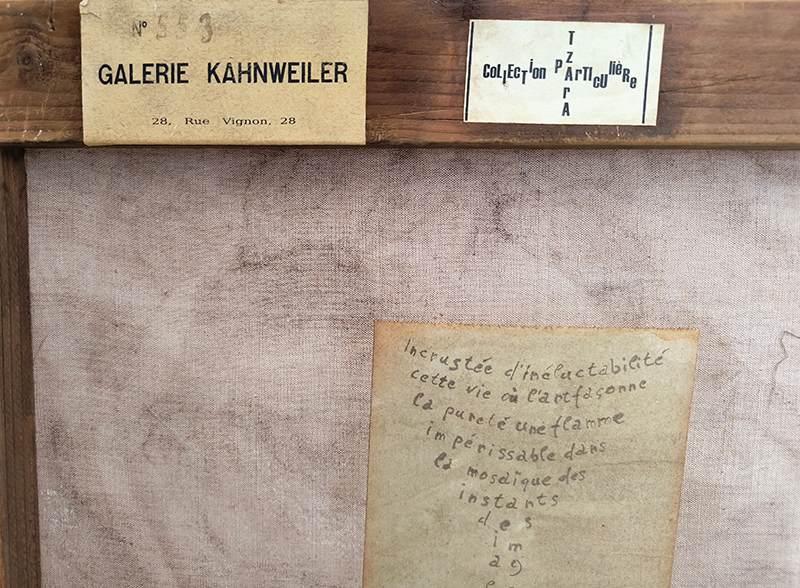 Nº 553
GALERIE KAHNWEILER
28, Rue Vignon, 28
TZARA
COLLECTION PARTICULIÈRE
Incrustée d'inéluctabilité
cette vie où l'art façonne
la pureté une flamme
impérissable dans
la mosaïque des
instants
des
im
ag